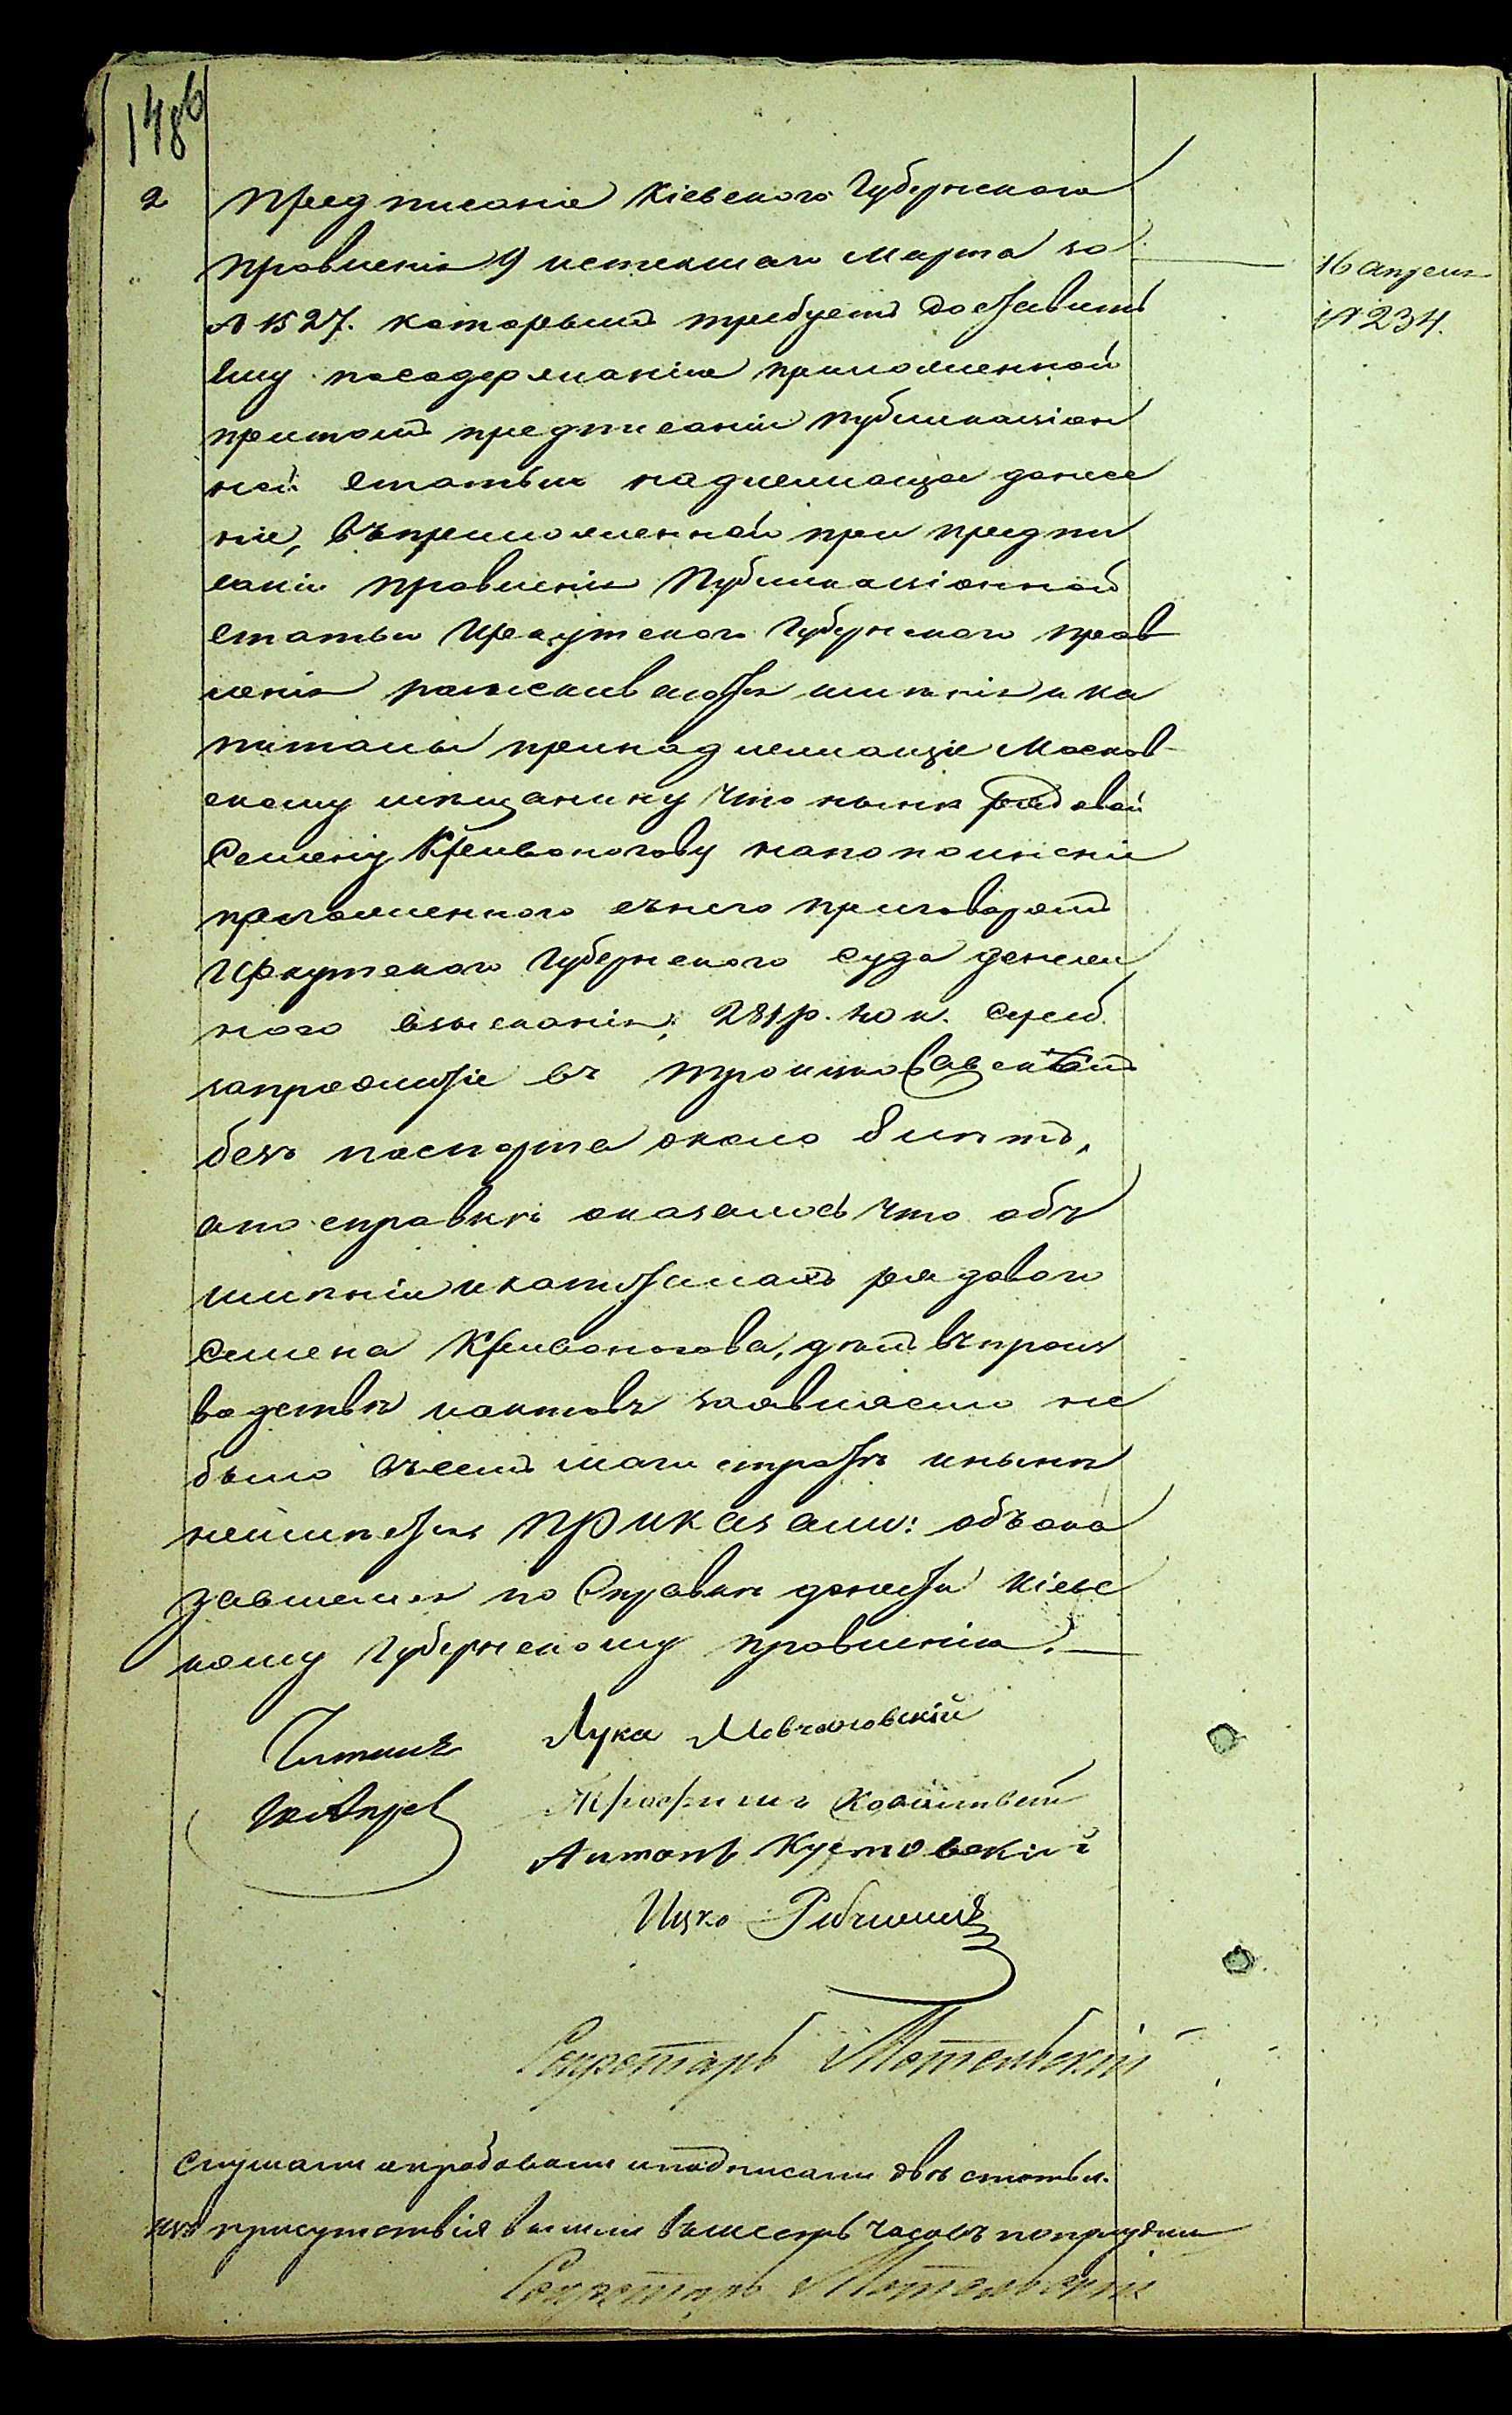 148б
2
предписаніе Кіевского Губернского
Правленія 9 истекшаго Марта за
16 апреля
№ 1527. которымъ требуетъ доставить
№ 234.
ему посодержанію приложенной
притомъ предписаніи публикаціон
ной статьи надлежащое донесе
ніе, въприложенной при предпи
саніи правленія Публикаціонной
статьи Иркутского Губернского прав
ленія разыскиваются имѣнія и ка
питалы принадлежащіе Москов-
скому мѣщанину что нынѣ рядовой
Семену Кривоногову напополненіе
приложенного снего приговоромъ
Иркутского Губернского суда денеж
ного взысканія, 281 р. 40 к. сереб.
запрожитіе въ Троицкосавскѣ
безъ паспорта около 8 лѣтъ,
апо справкѣ оказалось что объ
имѣніи икапиталахъ рядового
Семена Кривоногова, дѣлъ въпроиз
водствѣ иактовъ заявляемо не
было въсемъ магистратѣ инынѣ
неимѣется приказали: объока
завшемся по Справкѣ донести Кіевс
кому Губернскому правленію.
Лука Мовчановскій
Трофимъ
Антонъ Кустовскій
Ицко
Секретарь Мотельскій
слушали апробовали иподписали двѣ статьи.
изъ присутствія вышли вшесть часовъ пополудни
Секретарь Мотельскій